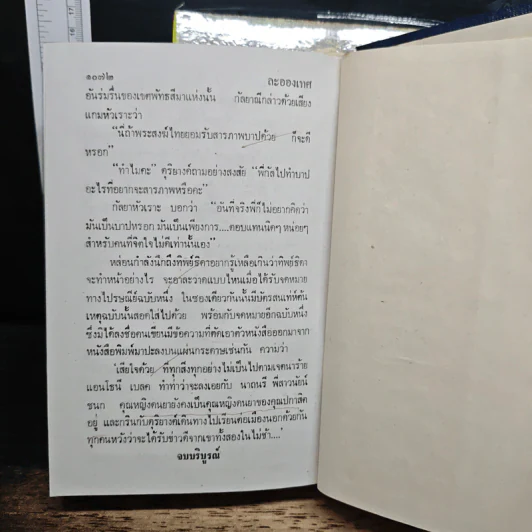 ๑๐๗๒ ละอองเทศ
อันร่มรื่นของเขตพัทธสีมาแห่งนั้น กัลยาณีกล่าวด้วยเสียง
แกมหัวเราะว่า
“นี่ถ้าพระสงฆ์ไทยยอมรับสารภาพบาปด้วย ก็จะดี
หรอก”
“ทำไมคะ” ดุริยางค์ถามอย่างสงสัย “พี่กัลไปทำบาป
อะไรที่อยากจะสารภาพหรือคะ”
กัลยาหัวเราะ บอกว่า “อันที่จริงพี่ก็ไม่อยากคิดว่า
มันเป็นบาปหรอก มันเป็นเพียงการ....ตอบแทนนิดๆ หน่อยๆ
สำหรับคนที่จิตใจไม่ดีเท่านั้นเอง”
หล่อนกำลังนึกถึงทิพย์ธิดาอยากรู้เหลือเกินว่าทิพย์ธิดา
จะทำหน้าอย่างไร จะอาละวาดแบบไหนเมื่อได้รับจดหมาย
ทางไปรษณีย์ฉบับหนึ่ง ในซองเดียวกันนั้นมีบัตรสนเท่ห์ต้น
เหตุฉบับนั้นสอดใส่ไปด้วย พร้อมกับจดหมายอีกฉบับหนึ่ง
ซึ่งมิได้ลงชื่อคนเขียนมีข้อความที่ตัดเอาตัวหนังสือออกมาจาก
หนังสือพิมพ์มาปะลงบนแผ่นกระดาษเช่นกัน ความว่า
‘เสียใจด้วย ที่ทุกสิ่งทุกอย่างไม่เป็นไปตามเจตนาร้าย
แอนโธนี เบลค ทำท่าว่าจะลงเอยกับ นาถนรี พี่สาวนัยน์
ชนก คุณหญิงคนยายังคงเป็นคุณหญิงคนยาของคุณปกาสิต
อยู่ และกรินกับดุริยางค์เดินทางไปเรียนต่อเมืองนอกด้วยกัน
ทุกคนหวังว่าจะได้รับข่าวดีจากเขาทั้งสองในไม่ช้า....’
จบบริบูรณ์